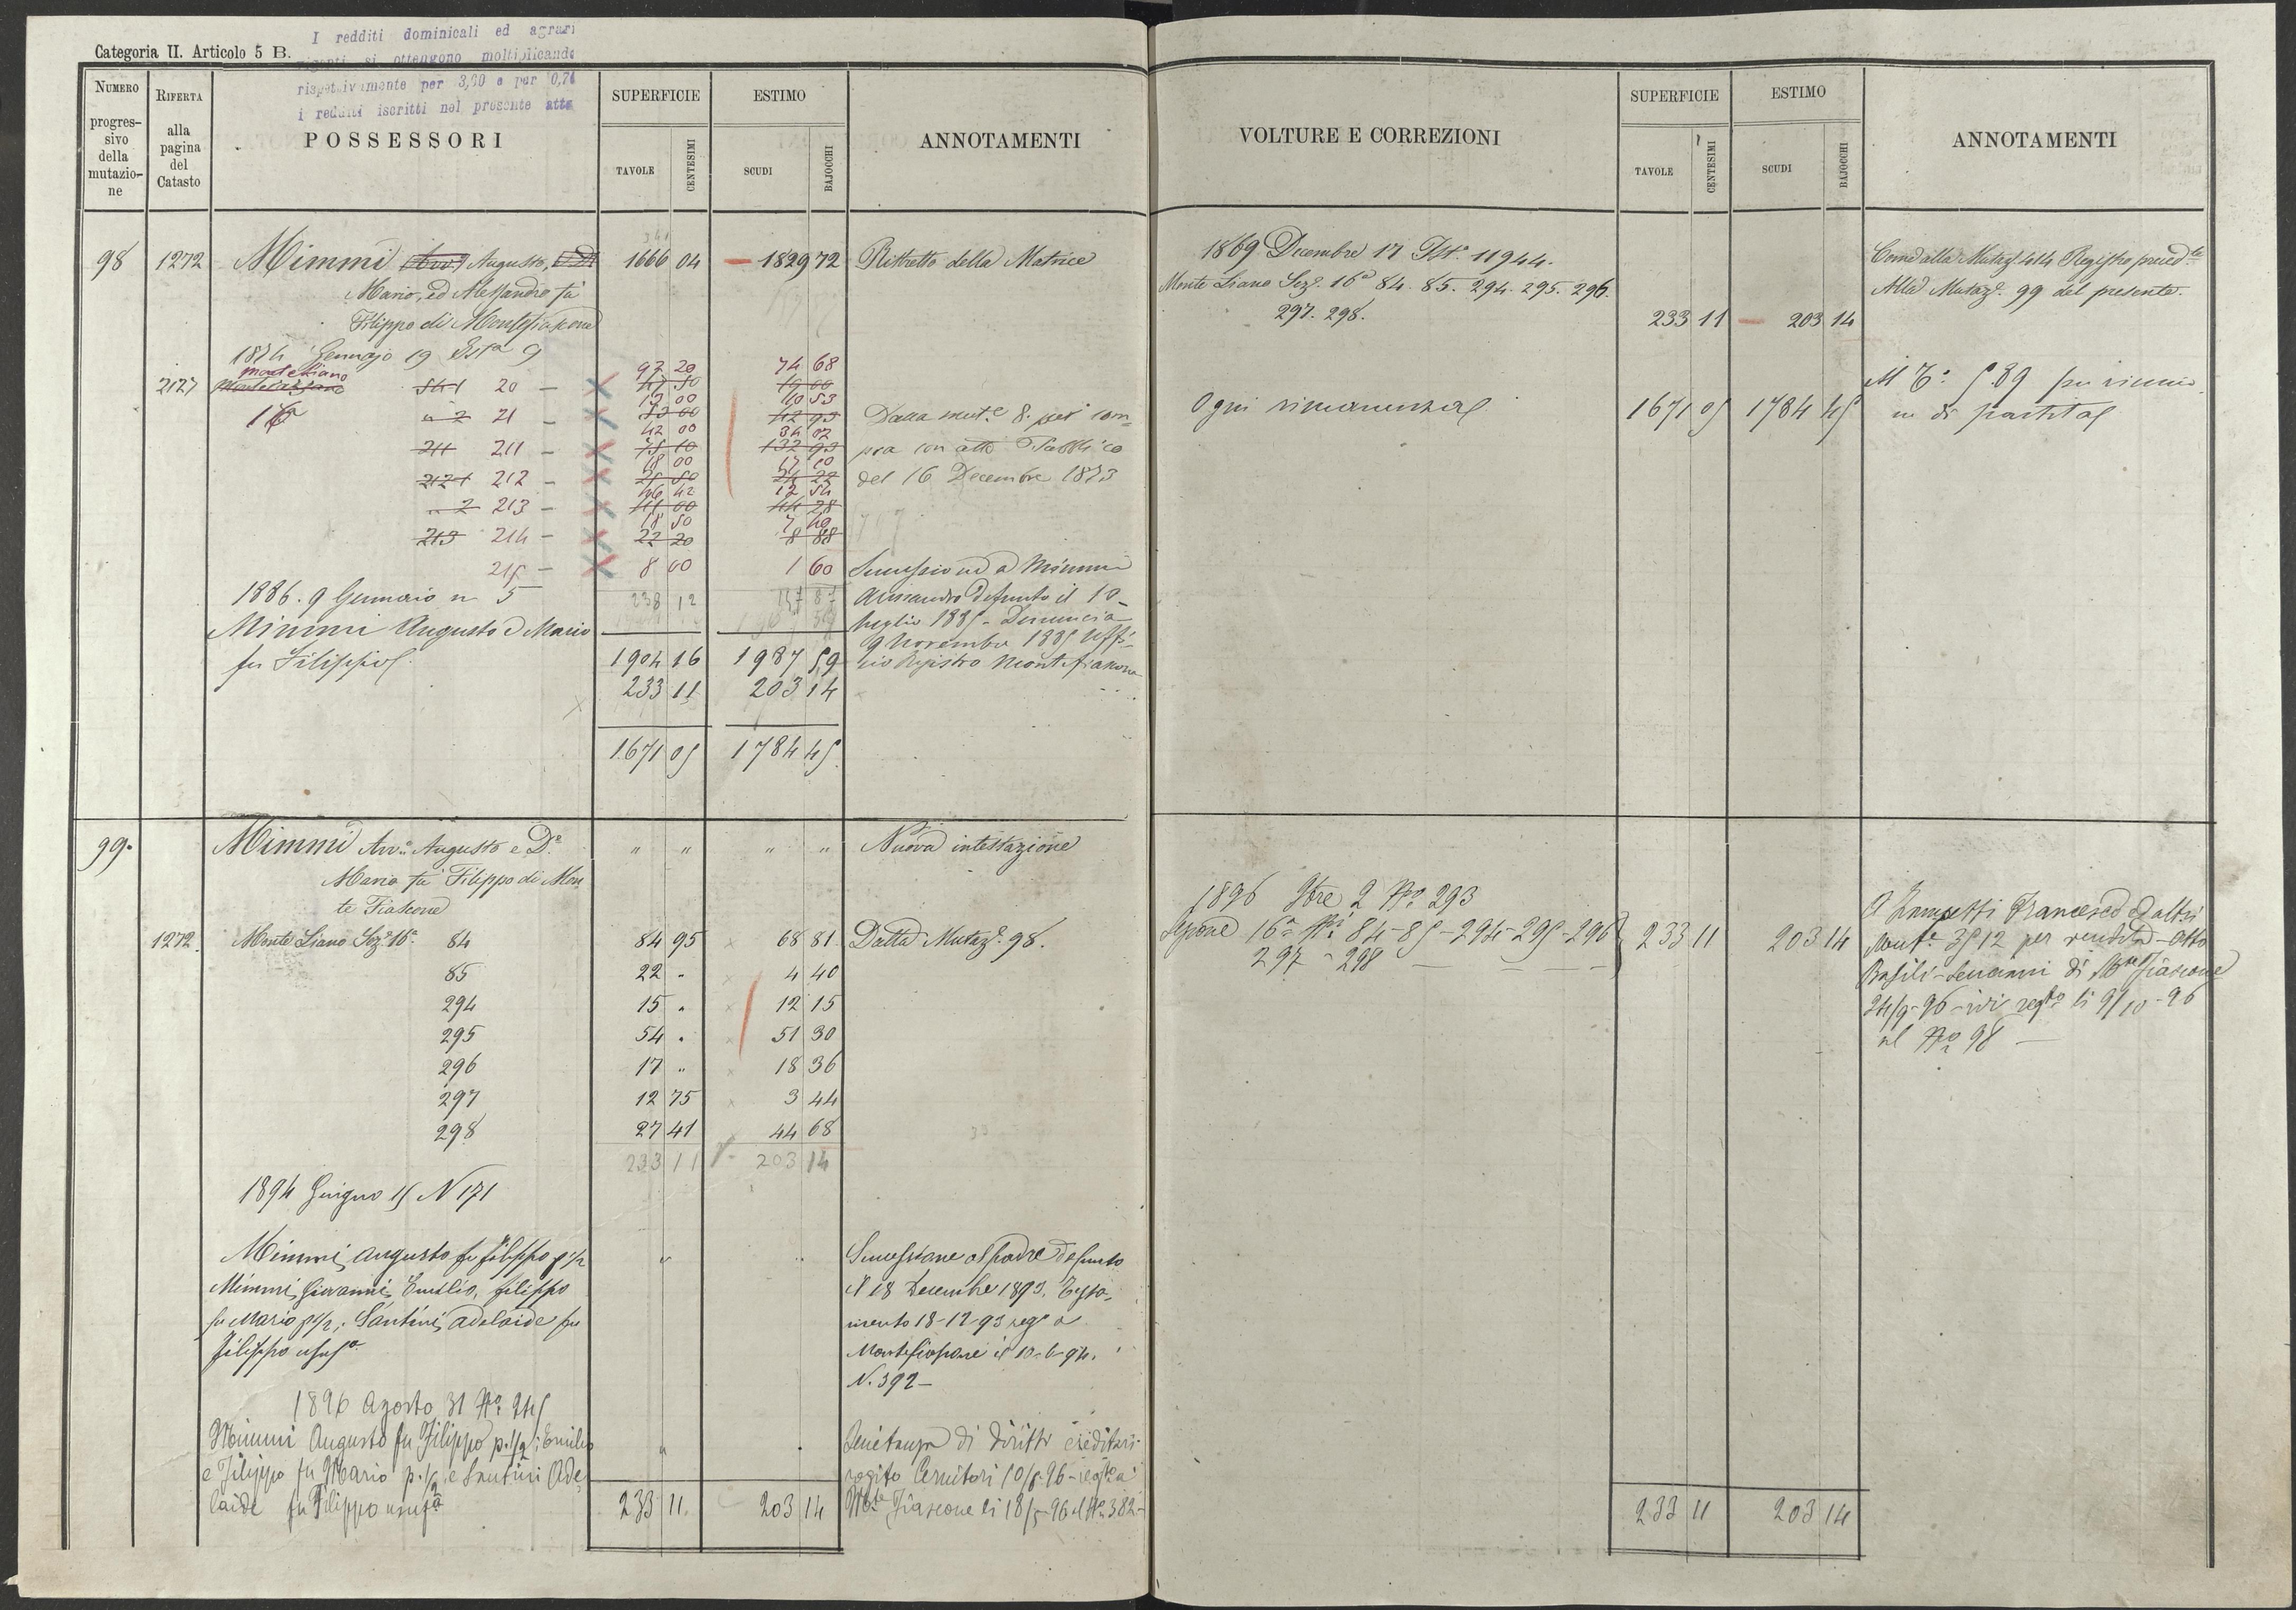 Categoria II. Articolo 5 B.
I redditi dominicali ed agrari
si ottengono moltiplicando
rispettivamente per 3,60 e per 0,74
i redditi iscritti nel presente atto
NUMERO progres-sivo della mutazio-ne
RIFERTA alla pagina del Catasto
POSSESSORI
SUPERFICIE
TAVOLE CENTESIMI
ESTIMO
SCUDI BAJOCCHI
ANNOTAMENTI
98 1272 Mimmi Augusto, 1666 04 1829 72 Ristretto della Matrice
Mario, ed Alessandro fu
Filippo di Montefiascone
1874 Gennajo 19 Ist.a 9
97 20 74 68
2127 Monteliano 541 20 — 47 50 19 00
13 00 10 53
16a " 2 21 — 42 93 Dalla mut.e 8. per com=
42 00 34 02
211 211 — 75 10 132 93 pra con atto Pubblico
18 00 17 10
212 1 212 — 25 50 24 22 del 16 Decembre 1873
46 42 12 54
" 2 213 — 41 00 44 28
18 50 7 40
213 214 — 22 20 8 88
215 — 8 00 1 60 Successione a Mimmi
1886. 9 Gennaio n 5 238 12 157 87 Alessandro defunto il 10
Mimmi Augusto e Mario luglio 1885 - Denuncia
9 Novembre 1885 Uffi-
fu Filippo 1904 16 1987 59 cio Registro Montefiascone
233 11 203 14
1671 05 1784 45
99. Mimmi Avv.o Augusto e D.e " " " " Nuova intestazione
Mario fu Filippo di Mon
te Fiascone
1272. Monte Liano Sez.e 16.a 84 84 95 68 81 Dalla Mutaz.e 98.
85 22 " 4 40
294 15 " 12 15
295 54 " 51 30
296 17 " 18 36
297 12 75 3 44
298 27 41 44 68
233 11 203 14
1894 Giugno 15 N 171
Mimmi Augusto fu Filippo p 1/2 " " Successione al padre defunto
Mimmi Giovanni, Emilio, Filippo il 18 Decembre 1893. Testa-
fu Mario p 1/2; Santini Adelaide fu mento 18-12-93 reg.o a
Filippo usuf.a Montefiascone il 10-6-94.
N. 392 —
1896 Agosto 31 No 245
Mimmi Augusto fu Filippo p. 1/2; Emilio " di diritti ereditari
e Filippo fu Mario p. 1/2 e Santini Ade= rogito 10/8-96 - reg.to a
laide fu Filippo usuf.a 233 11. 203 14 M.te Fiascone li 18/5-96 al No 382 -
VOLTURE E CORREZIONI
SUPERFICIE
TAVOLE CENTESIMI
ESTIMO
SCUDI BAJOCCHI
ANNOTAMENTI
1869 Decembre 17 Ist.a 11944. Come alla Mutaz.e 414 Registro preced.te
Monte Liano Sez.e 16.a 84. 85. 294. 295. 296. Alla Mutaz.e 99 del presente.
297. 298. 233 11 203 14
Al T.o 589 per riunio
Ogni rimanenza 1671 05 1784 45 ne di partita
1896 9bre 2 No 293 A Zampetti Francesco ed altri
Sezione 16a Ni 84-85-294-295-296 233 11 203 14 Mut.e 3512 per vendita - Atto
297 - 298 Basili di M.te Fiascone
24/9-96 - ivi reg.to li 9/10-96
al No 98 —
233 11 203 14